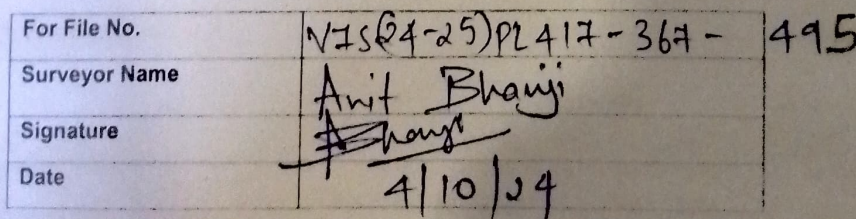 For File No. VIS(24-25)PL417-367-495
Surveyor Name Anit Bhanji
Signature
Date 4/10/24